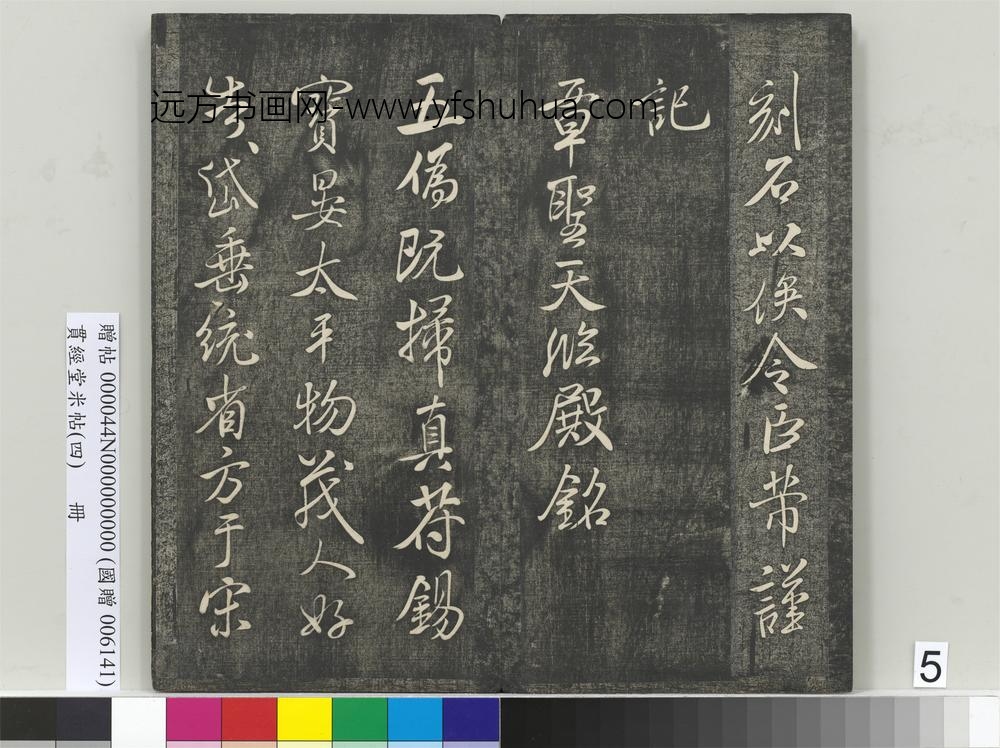 刻石以俟令臣芾謹
記
章聖天臨殿銘
五僞既掃真符錫
寶晏太平物茂人好
岱垂統省方于宋
远方书画网-www.yfshuhua.com
贈帖 000044N000000000 (國贈 006141)
貫經堂米帖(四) 冊
5